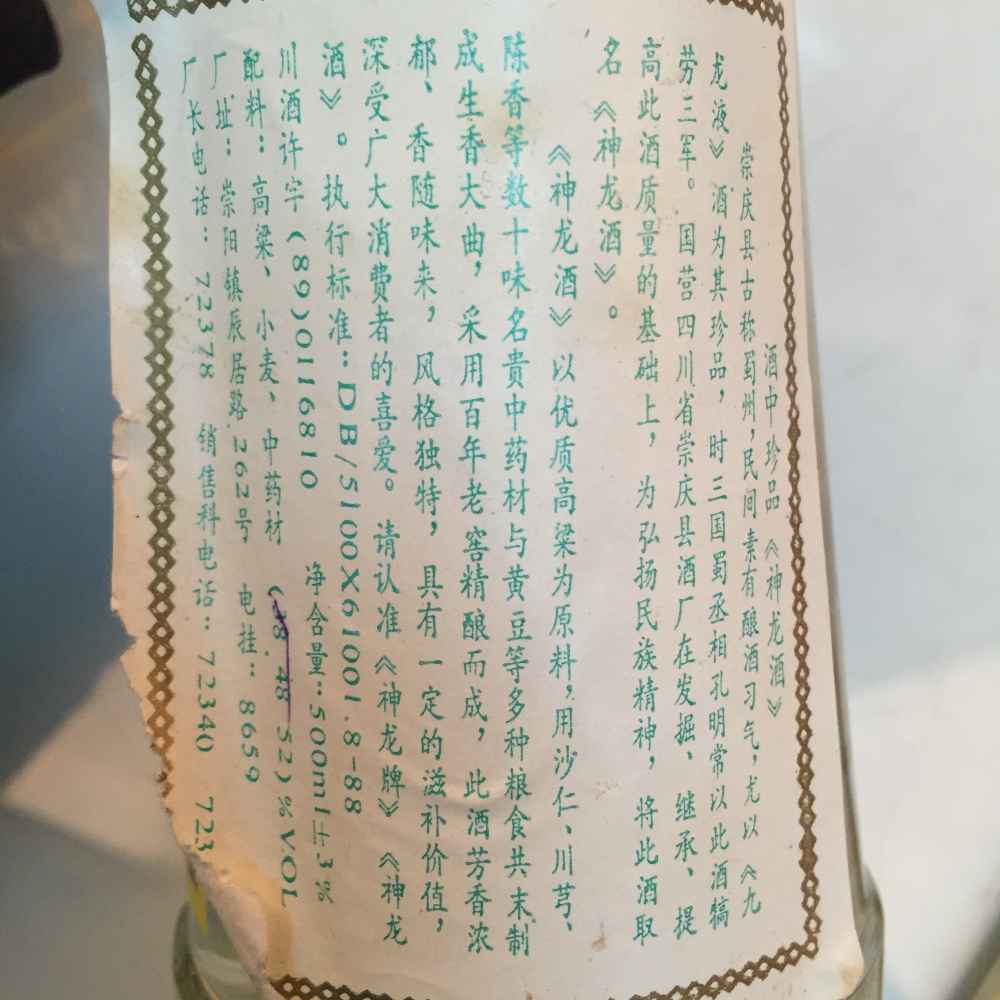 酒中珍品《神龙酒》
崇庆县古称蜀州，民间素有酿酒习气，尤以《九
龙液》酒为其珍品，时三国蜀丞相孔明常以此酒犒
劳三军。国营四川省崇庆县酒厂在发掘、继承、提
高此酒质量的基础上，为弘扬民族精神，将此酒取
名《神龙酒》。
《神龙酒》以优质高粱为原料，用沙仁、川芎、
陈香等数十味名贵中药材与黄豆等多种粮食共末制
成生香大曲，采用百年老窖精酿而成，此酒芳香浓
郁、香随味来，风格独特，具有一定的滋补价值，
深受广大消费者的喜爱。请认准《神龙牌》《神龙
酒》。执行标准：DB/5100X61001.8-88
川酒许字(89)0116810 净含量：500ml±3%
配料：高粱、小麦、中药材 (38 48 52)%VOL
厂址：崇阳镇辰居路262号 电挂：8659
厂长电话：72378 销售科电话：72340 723